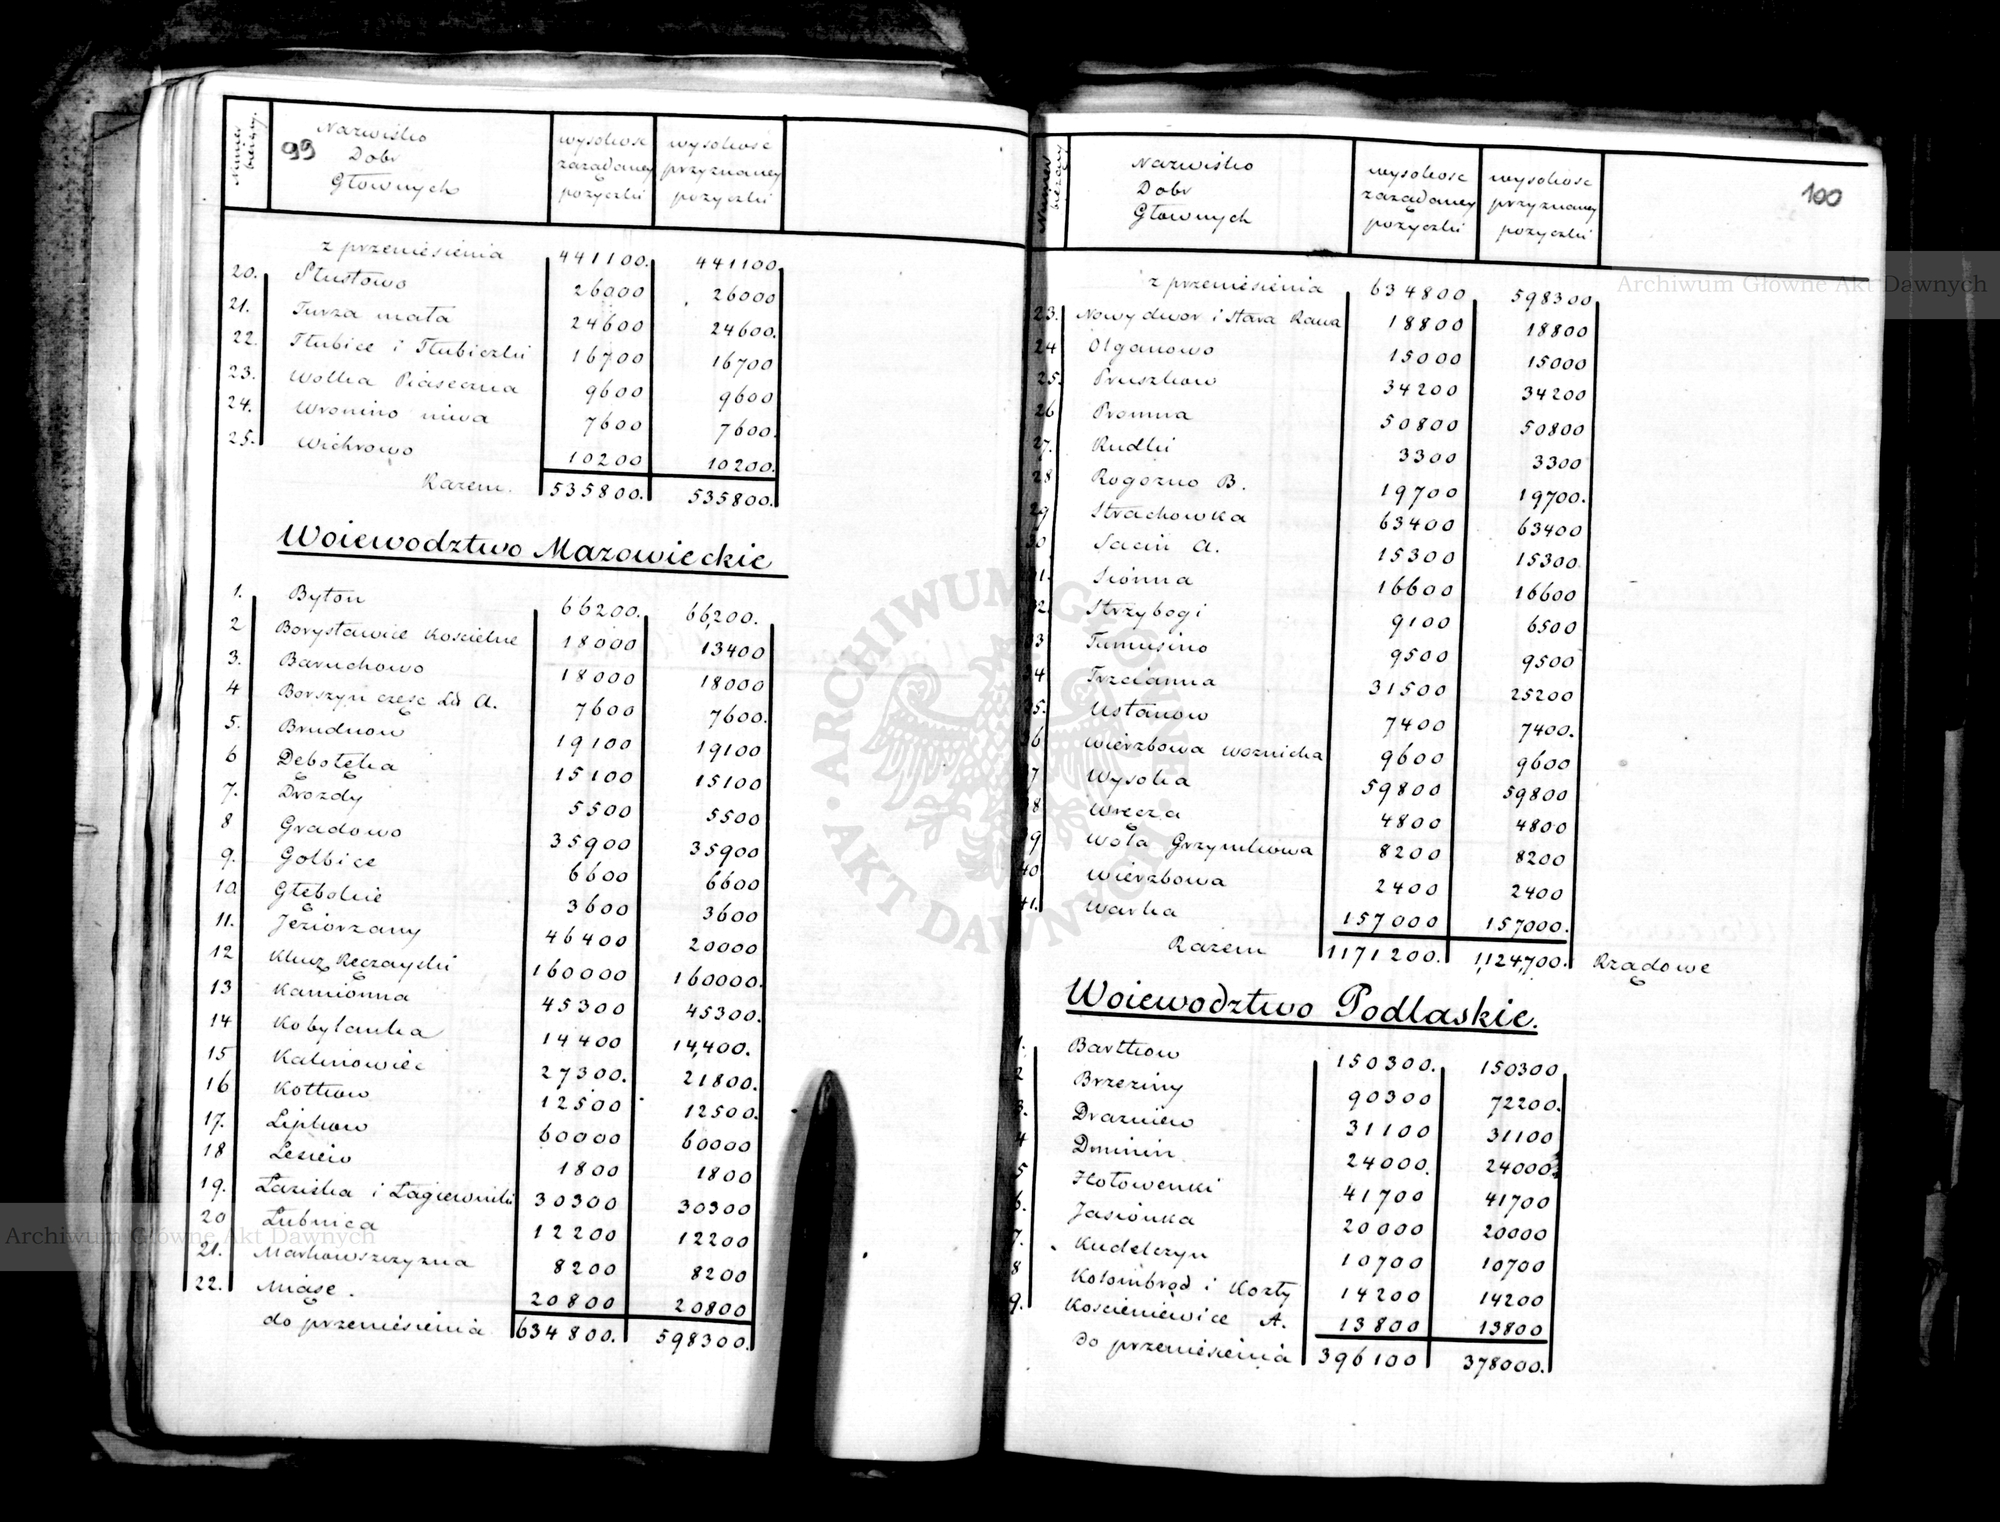 99
Numer bieżący.
Nazwisko
Dobr
Głownych
wysokosc
zazadaney
pozyczki
wysokosc
przyznaney
pozyczki
z przeniesienia 441100. 441100
20. Słustowo 26000 26000
21. Turza mała 24600 24600.
22. Tłubice i Tłubiczki 16700 16700
23. Wolka Piaseczna 9600 9600
24. Wronino niwa 7600 7600.
25. Wichrowo 10200 10200.
Razem. 535800. 535800.
Woiewodztwo Mazowieckie
1. Byton 66200. 66,200.
2 Borysławice Koscielne 18000 13400
3. Baruchowo 18000 18000
4 Borszyn częsc Lit A. 7600 7600.
5. Brudnow 19100 19100
6 Dębołęka 15100 15100
7. Drozdy 5500 5500
8 Gradowo 35900 35900
9. Golbice 6600 6600
10. Głębokie 3600 3600
11. Jeziorzany 46400 20000
12 Klucz Ręczayski 160000 160000.
13 Kamionna 45300 45300.
14 Kobylanka 14400 14,400.
15 Kalinowiec 27300. 21800.
16 Kotkow 12500 12500.
17. Lipkow 60000 60000
18 Lesiew 1800 1800
19. Łaziska i Łagiewniki 30300 30300
20 Lubnica 12200 12200
21. Markowszczyzna 8200 8200
22. Miąse. 20800 20800
do przeniesienia 634800. 598300.
100
Numer bieżący
Nazwisko
Dobr
Głownych
wysokosc
zazadaney
pozyczki
wysokosc
przyznaney
pozyczki
z przeniesienia 634800 598300
23. Nowydwor i Stara Rawa 18800 18800
24 Olganowo 15000 15000
25. Pruszkow 34200 34200
26 Promna 50800 50800
27. Rudki 3300 3300
28 Rogozno B. 19700 19700.
29 Strachowka 63400 63400
30 Sacin A. 15300 15300
31. Sionna 16600 16600
32. Strzybogi 9100 6500
33 Tumusino 9500 9500
34 Trzcianna 31500 25200
35. Ustanow 7400 7400.
36 Wierzbowa woznicka 9600 9600
37 Wysoka 59800 59800
38 Wręcza 4800 4800
39 Wola Grzymkowa 8200 8200
40 Wierzbowa 2400 2400
41. Warka 157000 157000.
Razem 1171200. 1,124,700. Rządowe
Woiewodztwo Podlaskie.
1. Bartkow 150300. 150300
2 Brzeziny 90300 72200.
3. Drazniew 31100 31100
4 Dminin 24000. 24000
5 Hołowenki 41700 41700
6. Jasionka 20000 20000
7. Kudelczyn 10700 10700
8 Kolombrod i Kozły 14200 14200
9. Koscieniewice A. 13800 13800
do przeniesienia 396100 378000.
Archiwum Główne Akt Dawnych
ARCHIWUM GŁÓWNE AKT DAWNYCH
Archiwum Główne Akt Dawnych